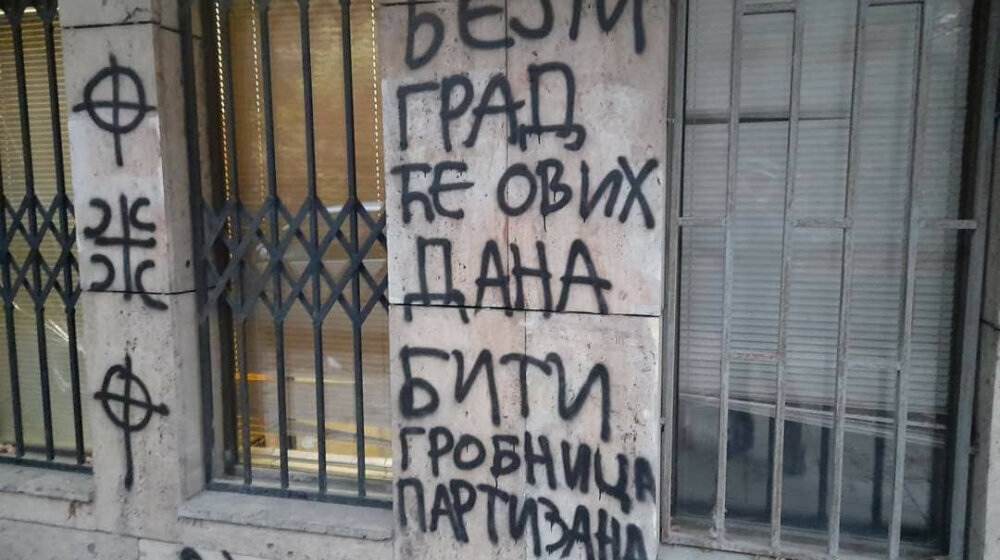 БЕЛИ
ГРАД
ЋЕ ОВИХ
ДАНА
БИТИ
ГРОБНИЦА
ПАРТИЗАНА